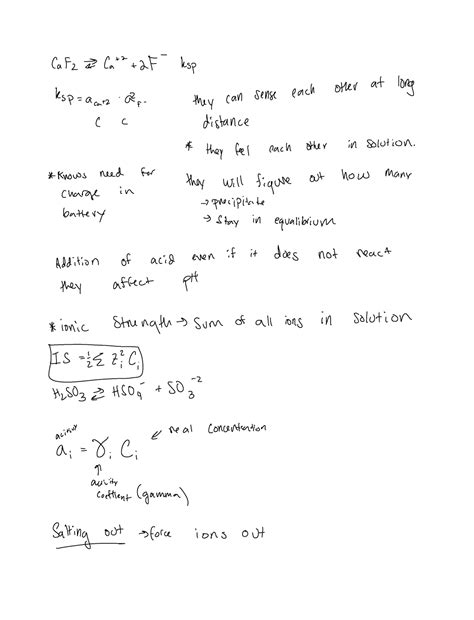 CaF2 ⇌ Ca⁺² + 2F⁻ ksp
ksp = a_Ca+2 · a²_F- they can sense each other at long
C C distance
* they feel each other in solution.
*Knows need for they will figure out how many
charge in → precipitate
battery → Stay in equilibrium
Addition of acid even if it does not react
they affect pH
*ionic Strength → Sum of all ions in solution
IS = ½ Σ Z_i² C_i
H₂SO₃ ⇌ HSO₉⁻ + SO₃⁻²
← real Concentration
a_i = γ_i C_i
↑
coefficient (gamma)
Salting out → force ions out